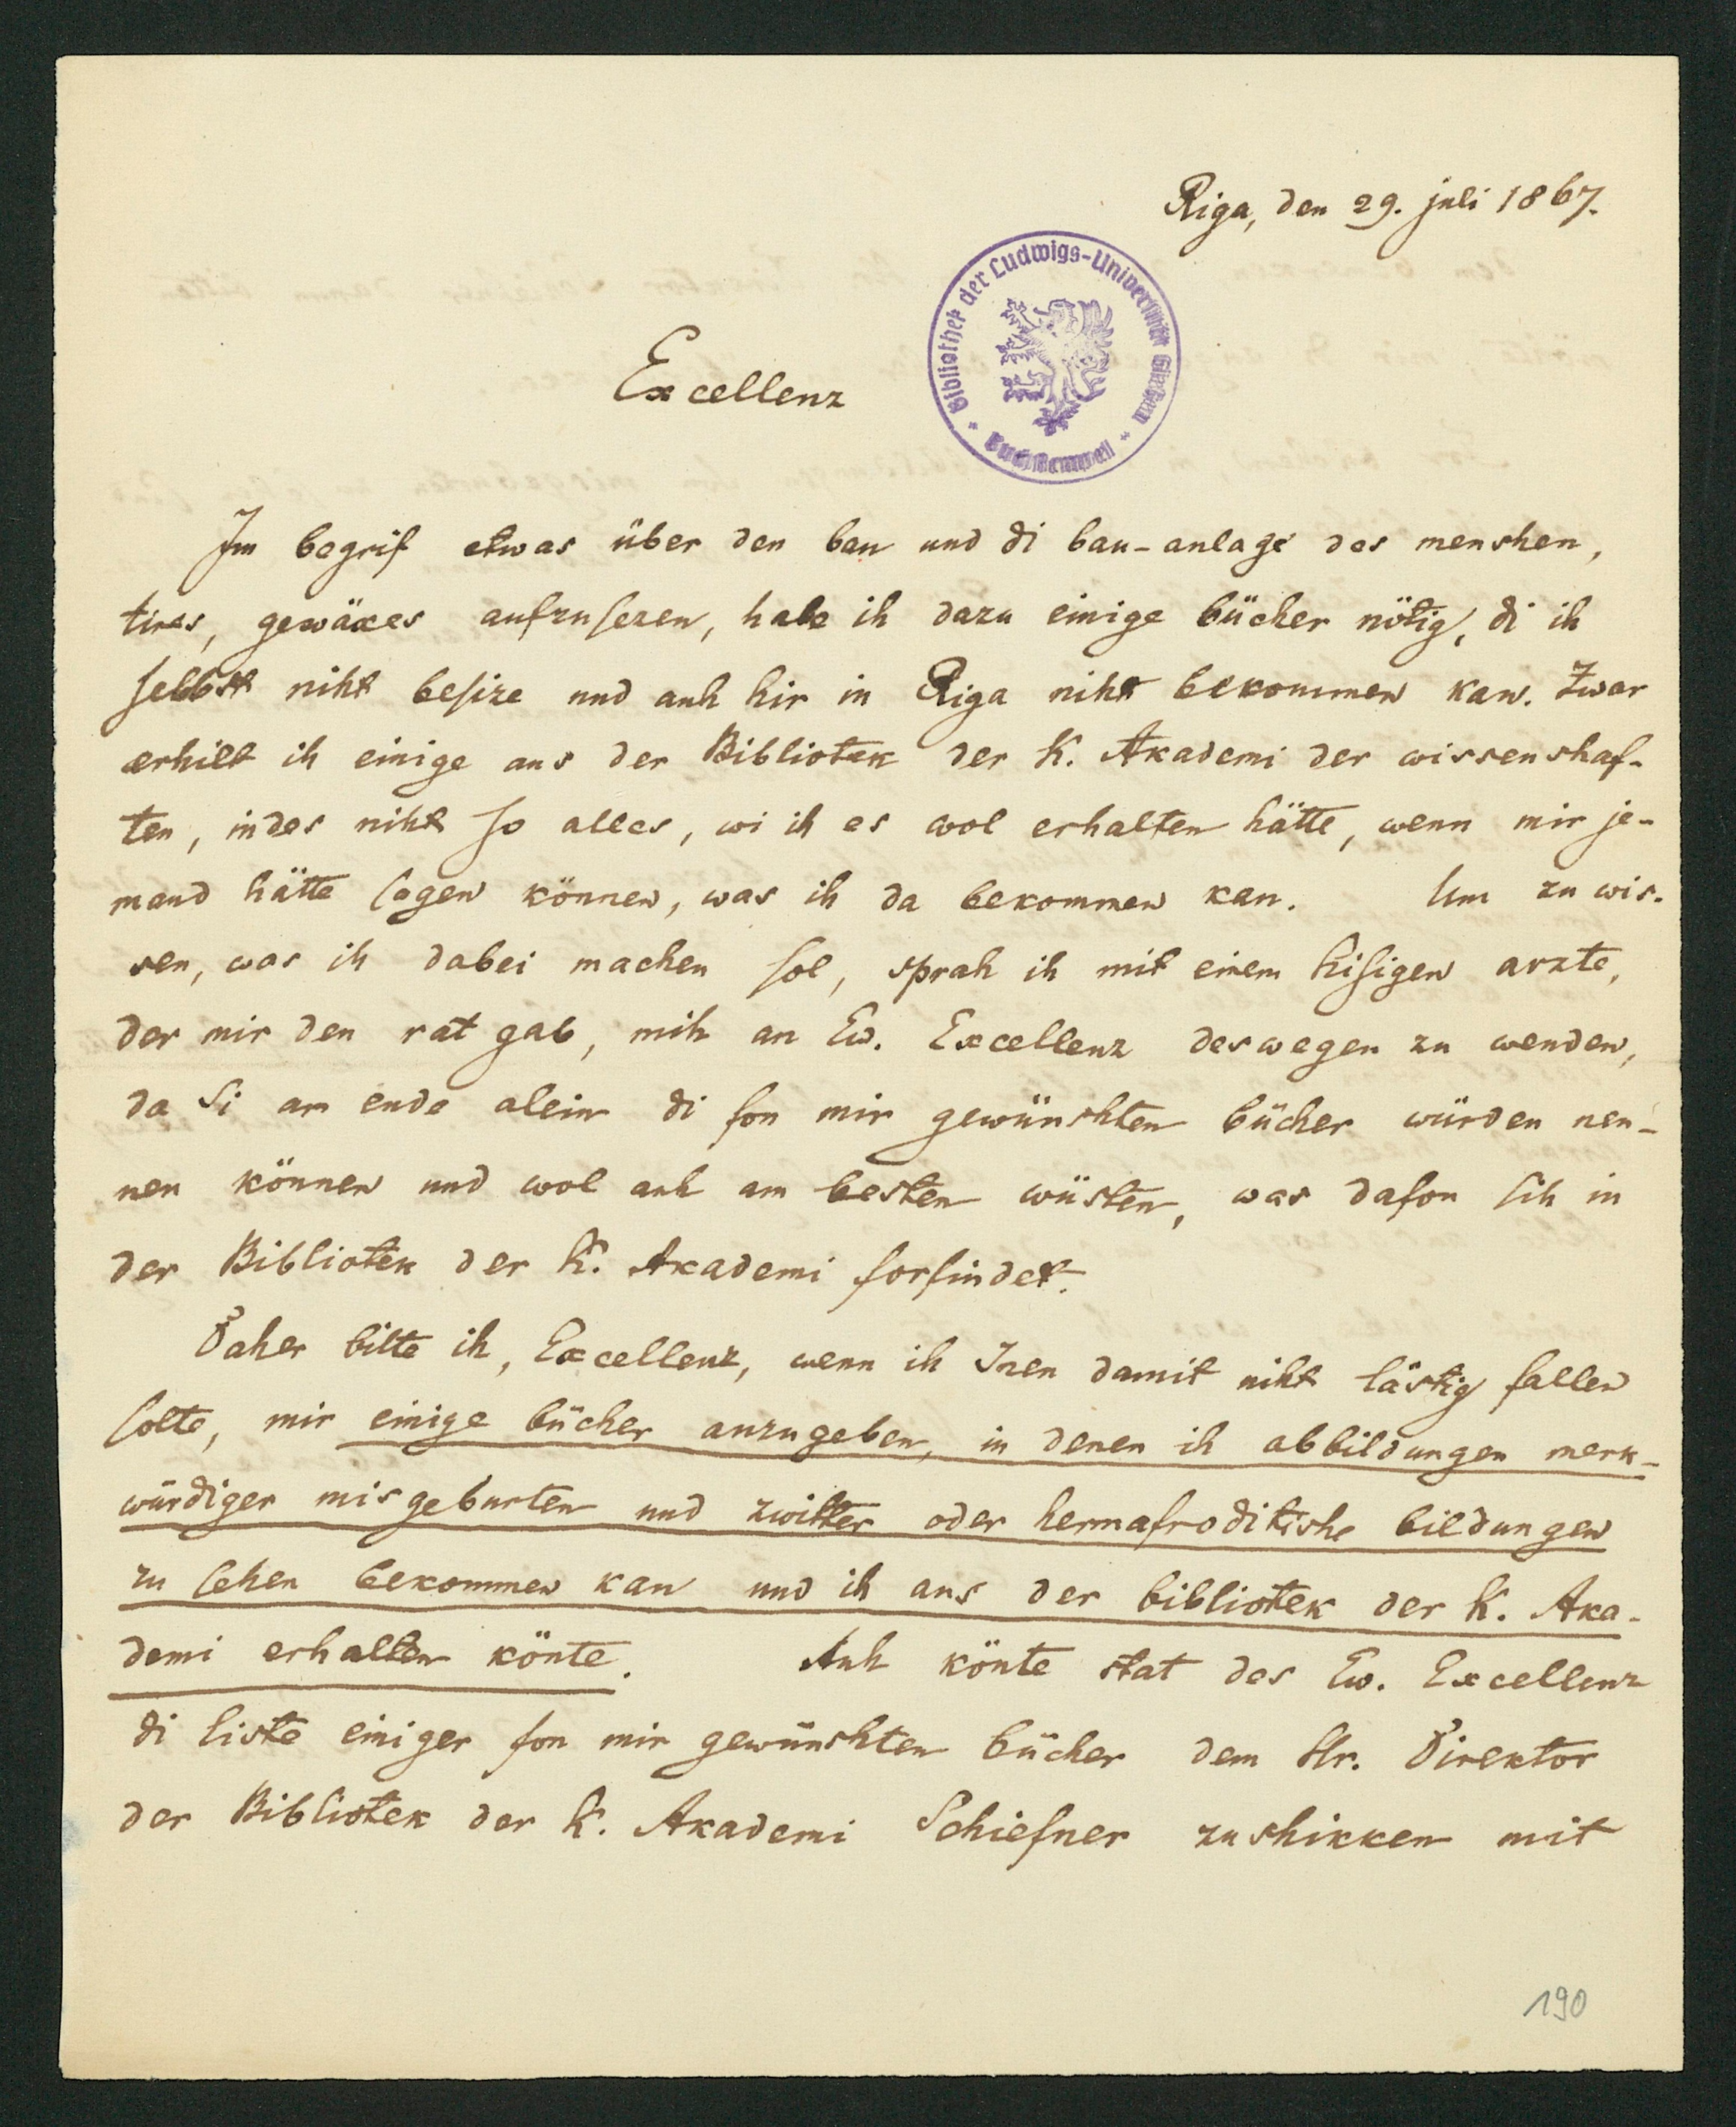 Riga, den 29. juli 1867.
Bibliothek der Ludwigs-Universität Giessen
Excellenz
Im begrif etwas über den bau und di bau-anlage des menshen,
tires, gewäxes aufzusezen, habe ih dazu einige bücher nötig, di ih
selbst niht besize und auh hir in Riga niht bekommen kan. Zwar
erhilt ih einige aus der Bibliotek der K. Akademi der wissenshaf-
ten, indes niht so alles, wi ih es wol erhalten hätte, wenn mir je-
mand hätte sagen können, was ih da bekommen kan. Um zu wis-
sen, was ih dabei machen sol, sprah ih mit einem hisigen arzte,
der mir den rat gab, mih an Ew. Excellenz deswegen zu wenden,
da Si am ende alein di fon mir gewünshten bücher würden nen-
nen können und wol auh am besten wüsten, was dafon sih in
der Bibliotek der K. Akademi forfindet.
Daher bitte ih, Excellenz, wenn ih Inen damit niht lästig fallen
solte, mir einige bücher anzugeben, in denen ih abbildungen merk-
würdiger misgeburten und zwitter oder hermafroditishe bildungen
zu sehen bekommen kan und ih aus der bibliotek der K. Aka-
demi erhalten könte. Auh könte stat des Ew. Excellenz
di liste einiger fon mir gewünshten bücher dem Hr. Direktor
der Bibliotek der K. Akademi Schiefner zushikken mit
190